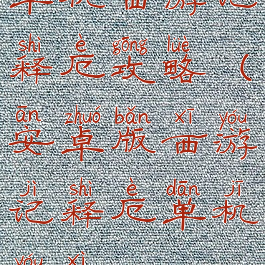 shì è gōng lüè
释厄攻略（
ān zhuó bǎn xī yóu
安卓版西游
jì shì è dān jī
记释厄单机
yóu xì